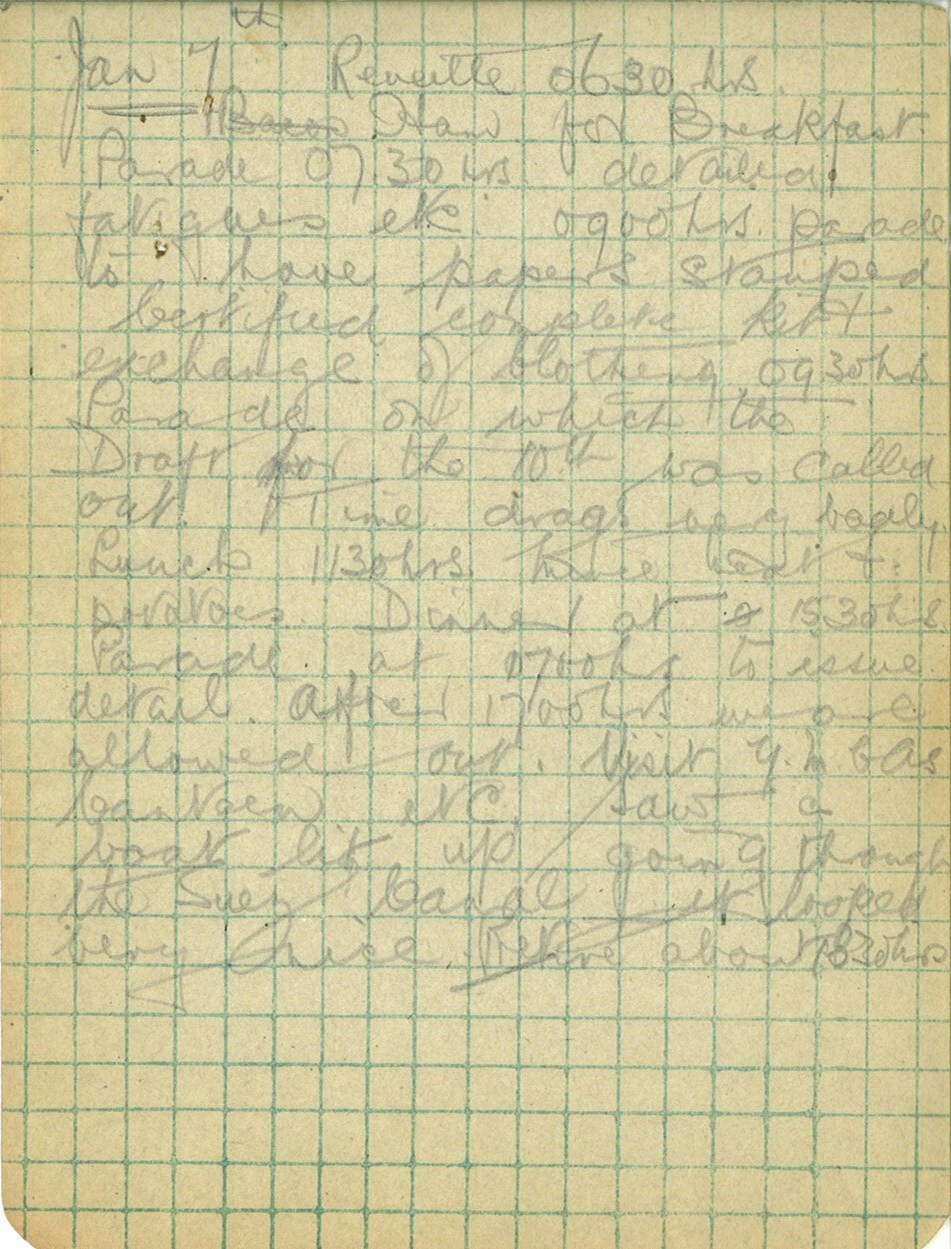 Jan 7th Reveille 0630 hrs.
Bacon Ham for Breakfast
Parade 0730 hrs detailed
fatigues etc. 0900 hrs. parade
to have papers stamped
Certified complete kit +
exchange of Clothing 0930 hrs
Parade on which the
Draft for the 10th was called
out. Time drags very badly.
Lunch 1130 hrs. meat +
potatoes. Dinner at 1530 hrs
Parade at 1700 hrs to issue
detail. After 1700 hrs we are
allowed out. Visit Y.M.CAs
Canteen etc. Saw a
boat lit up going through
the Suez Canal it looked
very nice. Retire about 1830 hrs